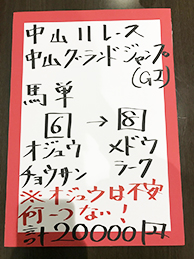 中山11レース
中山グランドジャンプ
(GI)
馬単
6 → 8
オジュウ メドウ
チョウサン ラーク
※オジュウは不安
何一つない!
計20000円